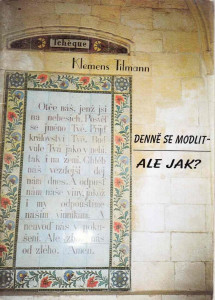 Tchèque
Klemens Tilmann
DENNĚ SE MODLIT-
ALE JAK?
Otče náš, jenž jsi
na nebesích. Posvěť
se jméno Tvé. Přijď
království Tvé. Buď
vůle Tvá jako v nebi,
tak i na zemi. Chléb
náš vezdejší dej
nám dnes. A odpusť
nám naše viny, jakož
i my odpouštíme
našim viníkům. A
neuvoď nás v poku-
šení. Ale zbav nás
od zlého. Amen.